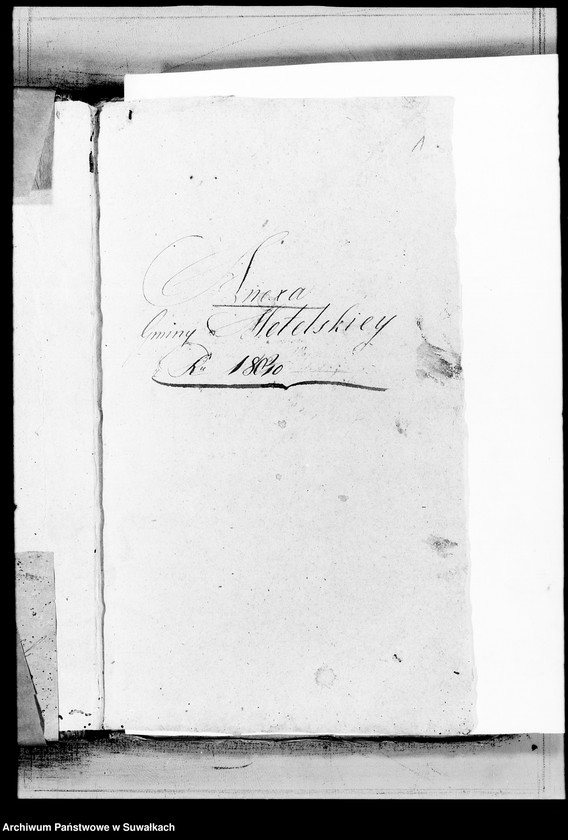 Anexa
Gminy Metelskiey
Ru 1810
Archiwum Państwowe w Suwałkach